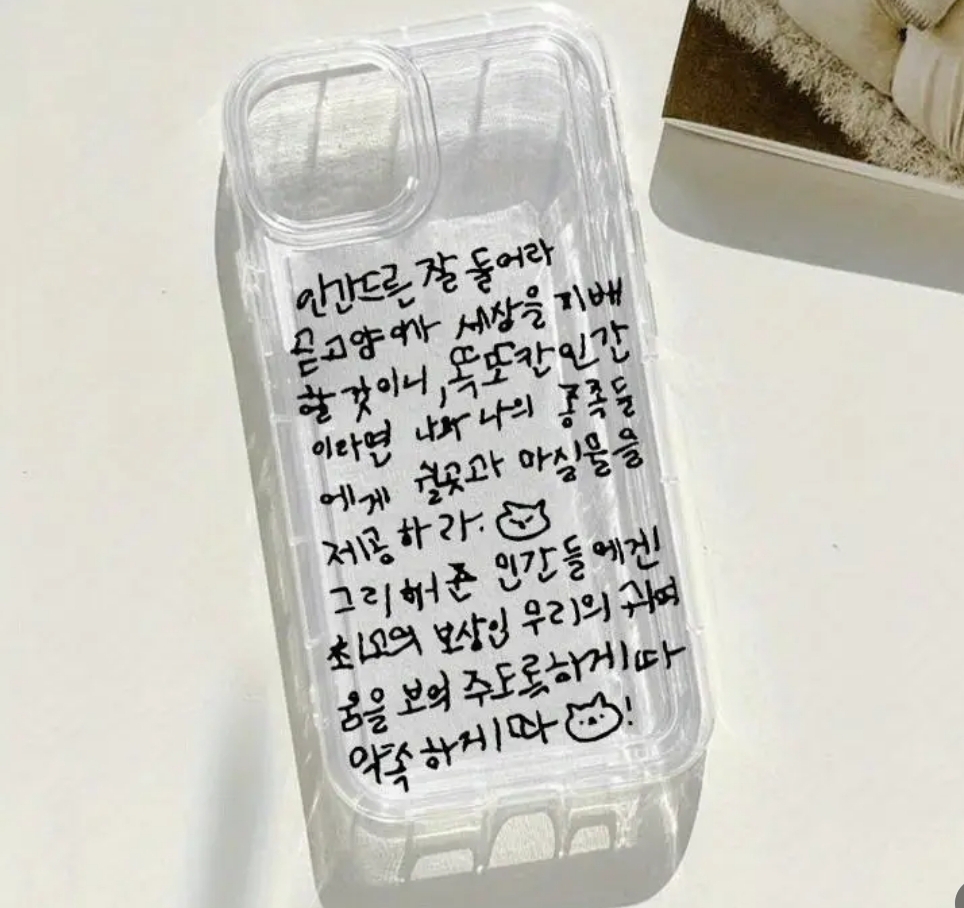 인간드른 잘 둘어라
곧고양이가 세상을 지배
할 것이니, 똑또칸 인간
이라면 나와 나의 종족들
에게 쉴곳과 마실물을
제공하라.
그리해준 인간들에겐
최고의 보상인 우리의 귀여
움을 보여 주도록하게따
약속하게따 !